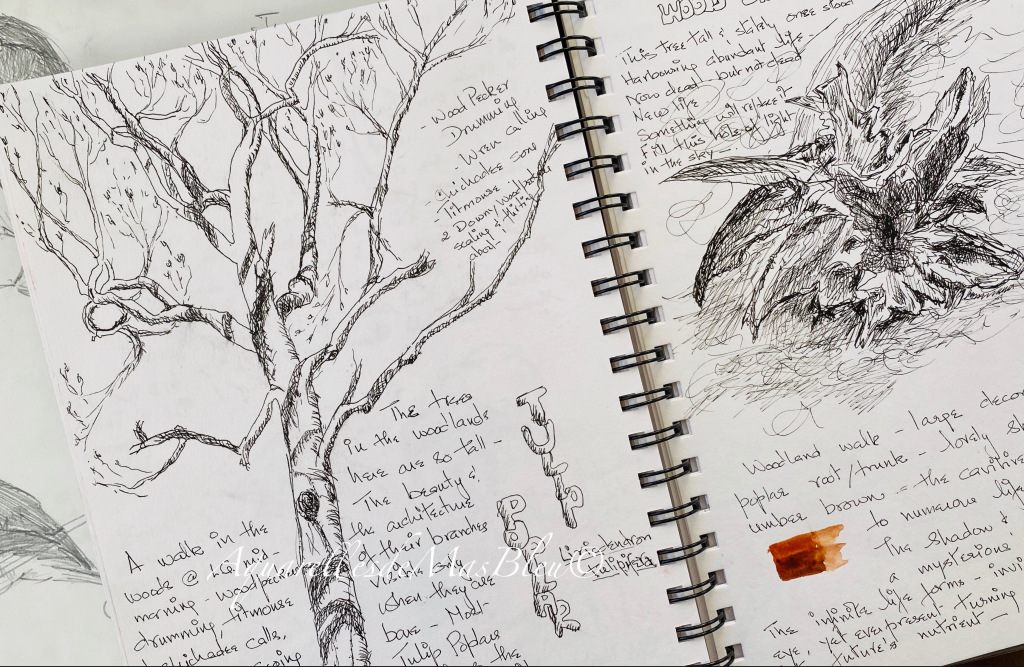 - WoodPecker
Drumming
- Wren calling
- Chickadee song
Titmouse
2 Downy Woodpeckers
about -
The trees
in the woodlands
here are so tall -
The beauty &
the architecture
of their branches
when they are
bare - Most
Tulip Poplars
TULIP POPLAR
Liriodendron
tulipifera
A walk in the
woods @
morning - woodpecker
drumming, titmouse
& chickadee calls,
WOODY
This tree tall & stately once stood
Harboring abundant life -
Now dead but not dead
New life
Something will replace it
Fill this hole of light
in the sky
Woodland walk - large
poplar root/trunk - lovely
umber brown - the cavities
to numerous life
The shadow &
a mysterious
The infinite life forms -
eye, yet ever present turning
future's nutrient -
AquarellesdeMasBleu©